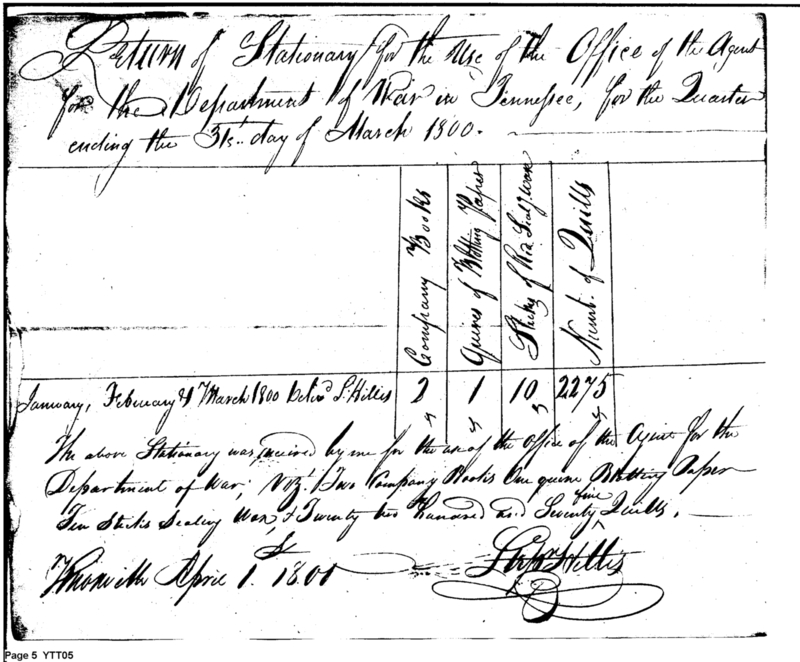 Return of Stationary for the Use of the Office of the Agent
for the Department of War in Tennessee, for the Quarter
ending the 31st. day of March 1800.
Company Books
Quires of Blotting Paper
Sticks of Red Sealg Wax
Numb. of Quills
January, February & March 1800 S. Hillis
2 1 10 2275
The above Stationary was received by me for the use of the Office of the Agent for the
Department of War, Vizt. Two Company Books One quire Blotting Paper
Ten Sticks Sealing Wax, & Twenty two Hundred and Seventy five Quills.
Knoxville April 1. 1800
Hillis
Page 5 YTT05